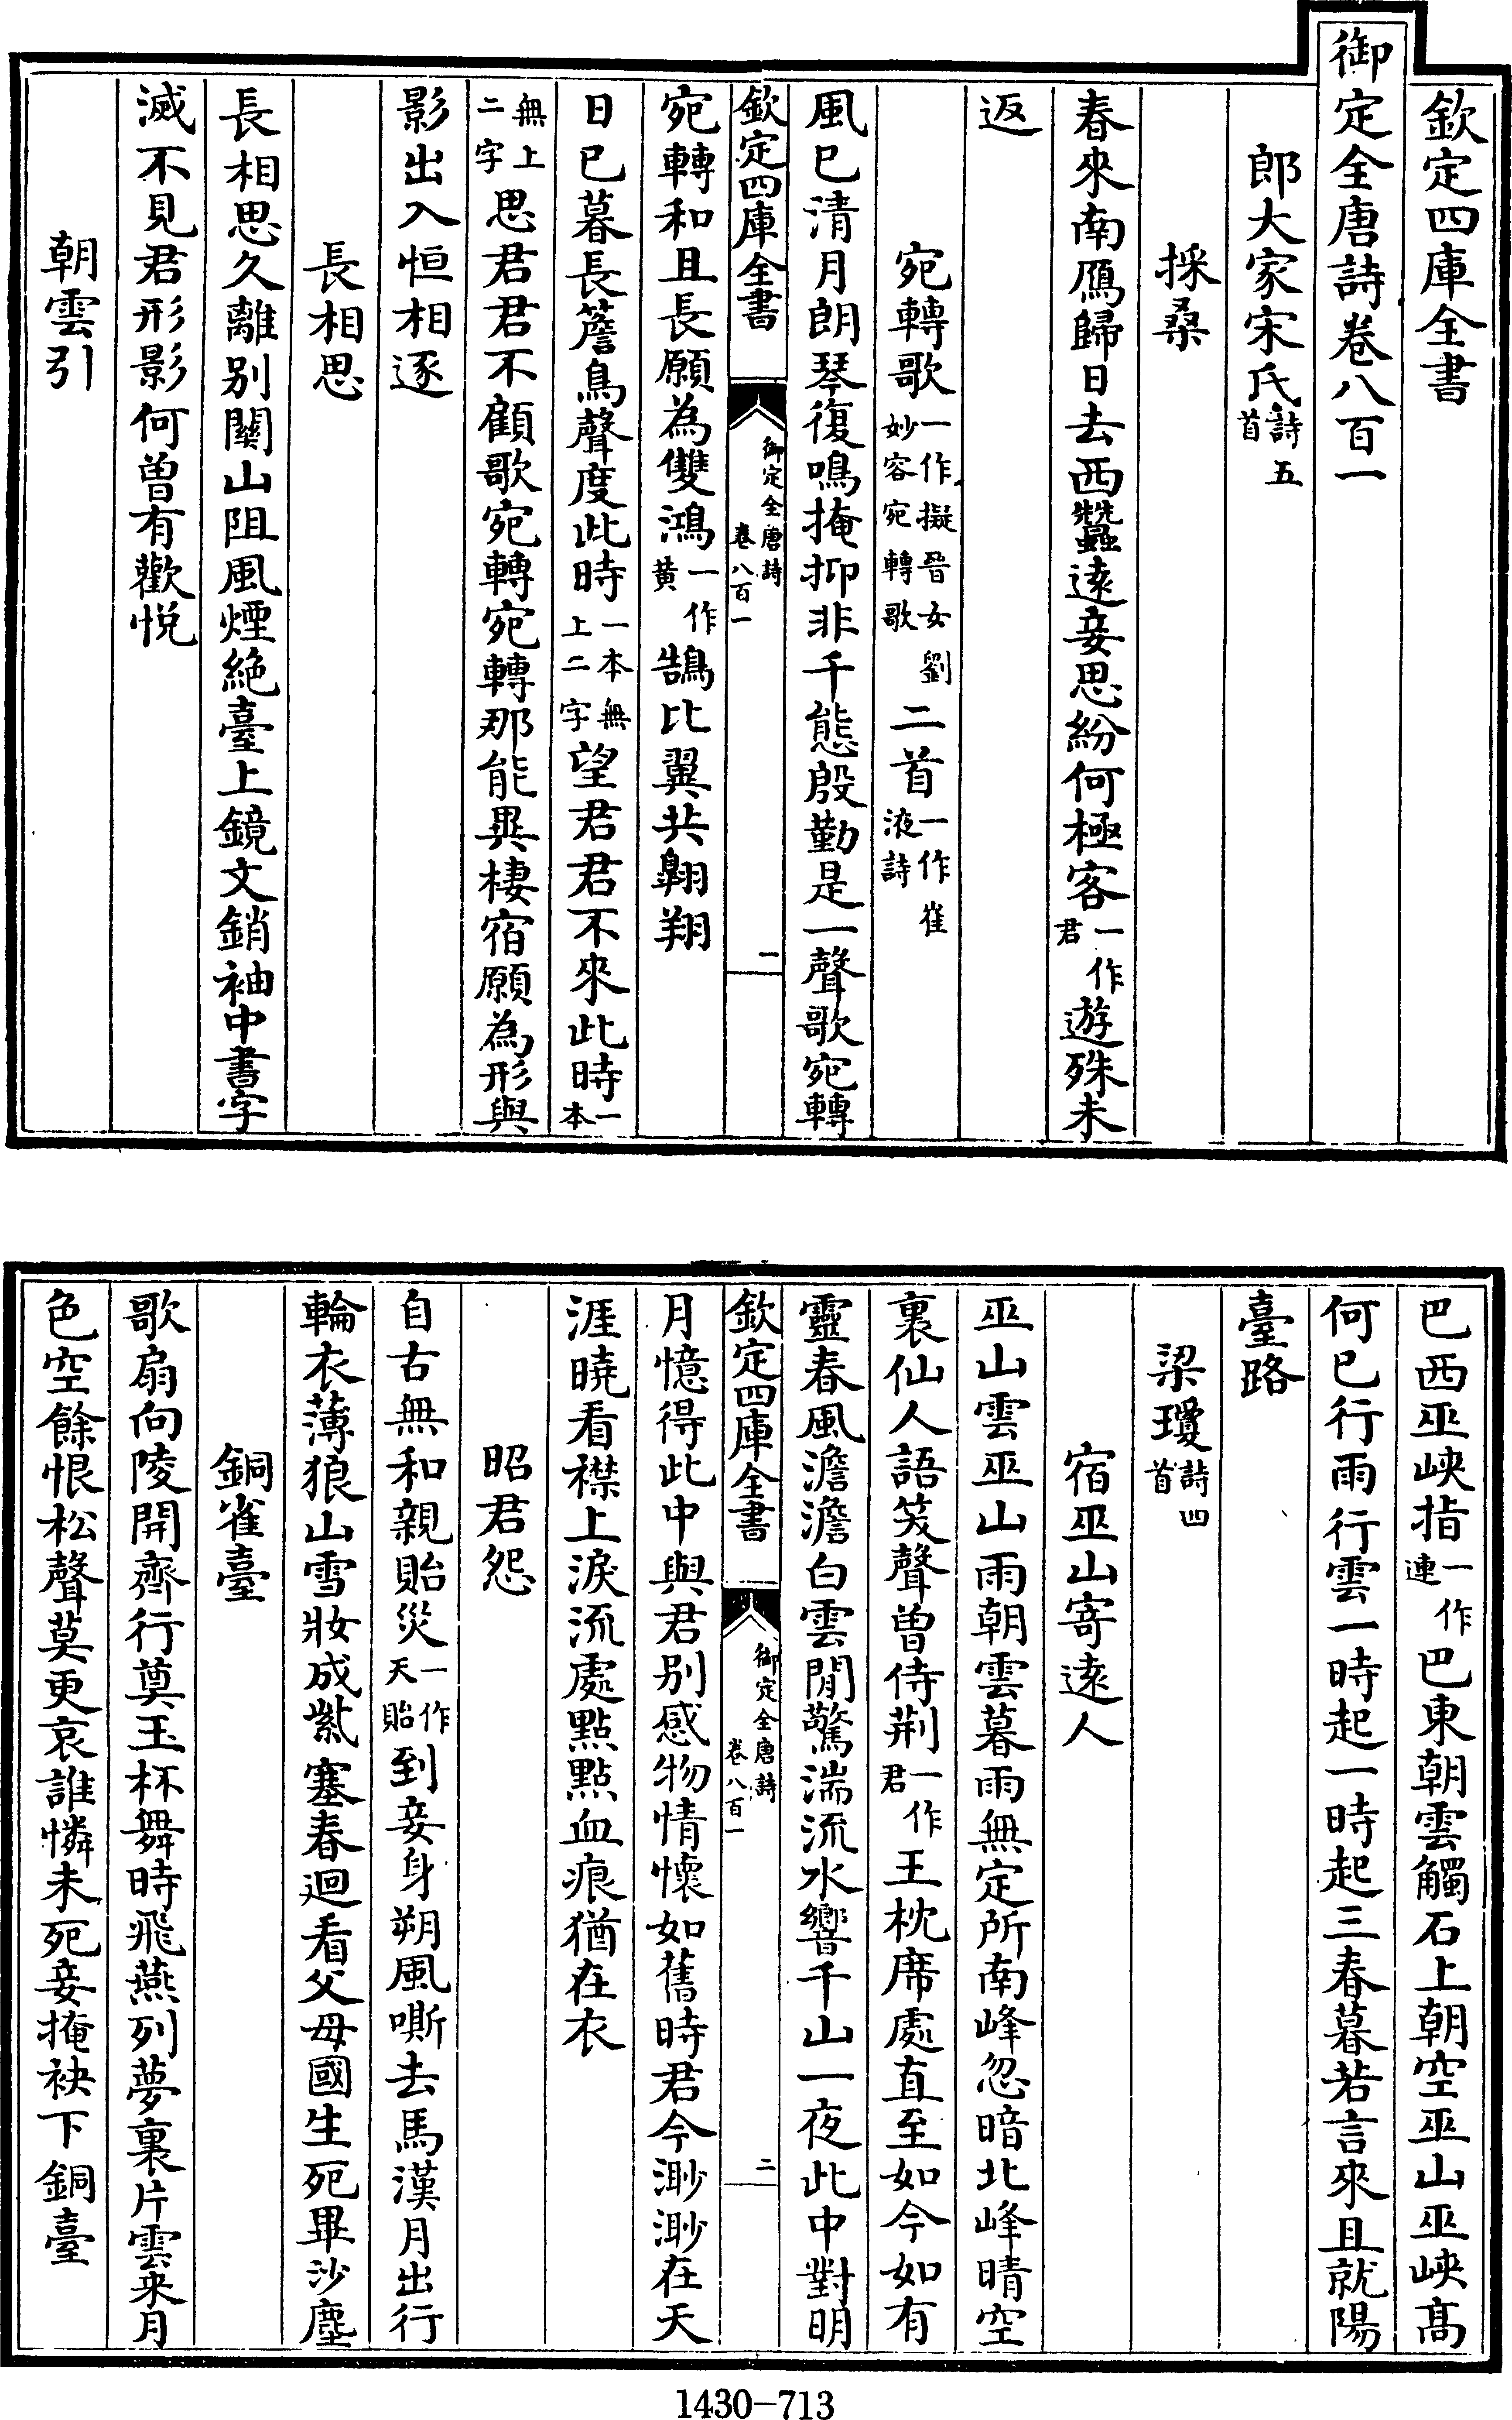 欽定四庫全書
御定全唐詩卷八百一
郎大家宋氏詩五首
採桑
春來南鴈歸日去西蠶遠妾思紛何極客一作君遊殊未
返
宛轉歌一作擬晉女劉妙容宛轉歌二首一作崔液詩
風已清月朗琴復鳴掩抑非千態殷勤是一聲歌宛轉
欽定四庫全書
御定全唐詩
卷八百一
一
宛轉和且長願為雙鴻一作黄鵠比翼共翺翔
日已暮長簷鳥聲度此時一本無上二字望君君不來此時一本
無上二字思君君不顧歌宛轉宛轉那能異棲宿願為形與
影出入恒相逐
長相思
長相思久離别關山阻風煙絶臺上鏡文銷袖中書字
滅不見君形影何曾有歡悦
朝雲引
巴西巫峽指一作連巴東朝雲觸石上朝空巫山巫峽髙
何已行雨行雲一時起一時起三春暮若言來且就陽
臺路
梁瓊詩四首
宿巫山寄遠人
巫山雲巫山雨朝雲暮雨無定所南峰忽暗北峰晴空
裏仙人語笑聲曾侍荆一作君王枕席處直至如今如有
靈春風澹澹白雲閒驚湍流水響千山一夜此中對明
欽定四庫全書
御定全唐詩
卷八百一
二
月憶得此中與君别感物情懷如舊時君今渺渺在天
涯曉看襟上淚流處點點血痕猶在衣
昭君怨
自古無和親貽災一作天貽到妾身朔風嘶去馬漢月出行
輪衣薄狼山雪妝成紫塞春迴看父母國生死畢沙塵
銅雀臺
歌扇向陵開齊行奠玉杯舞時飛燕列夢裏片雲来月
色空餘恨松聲莫更哀誰憐未死妾掩袂下銅臺
1430-713